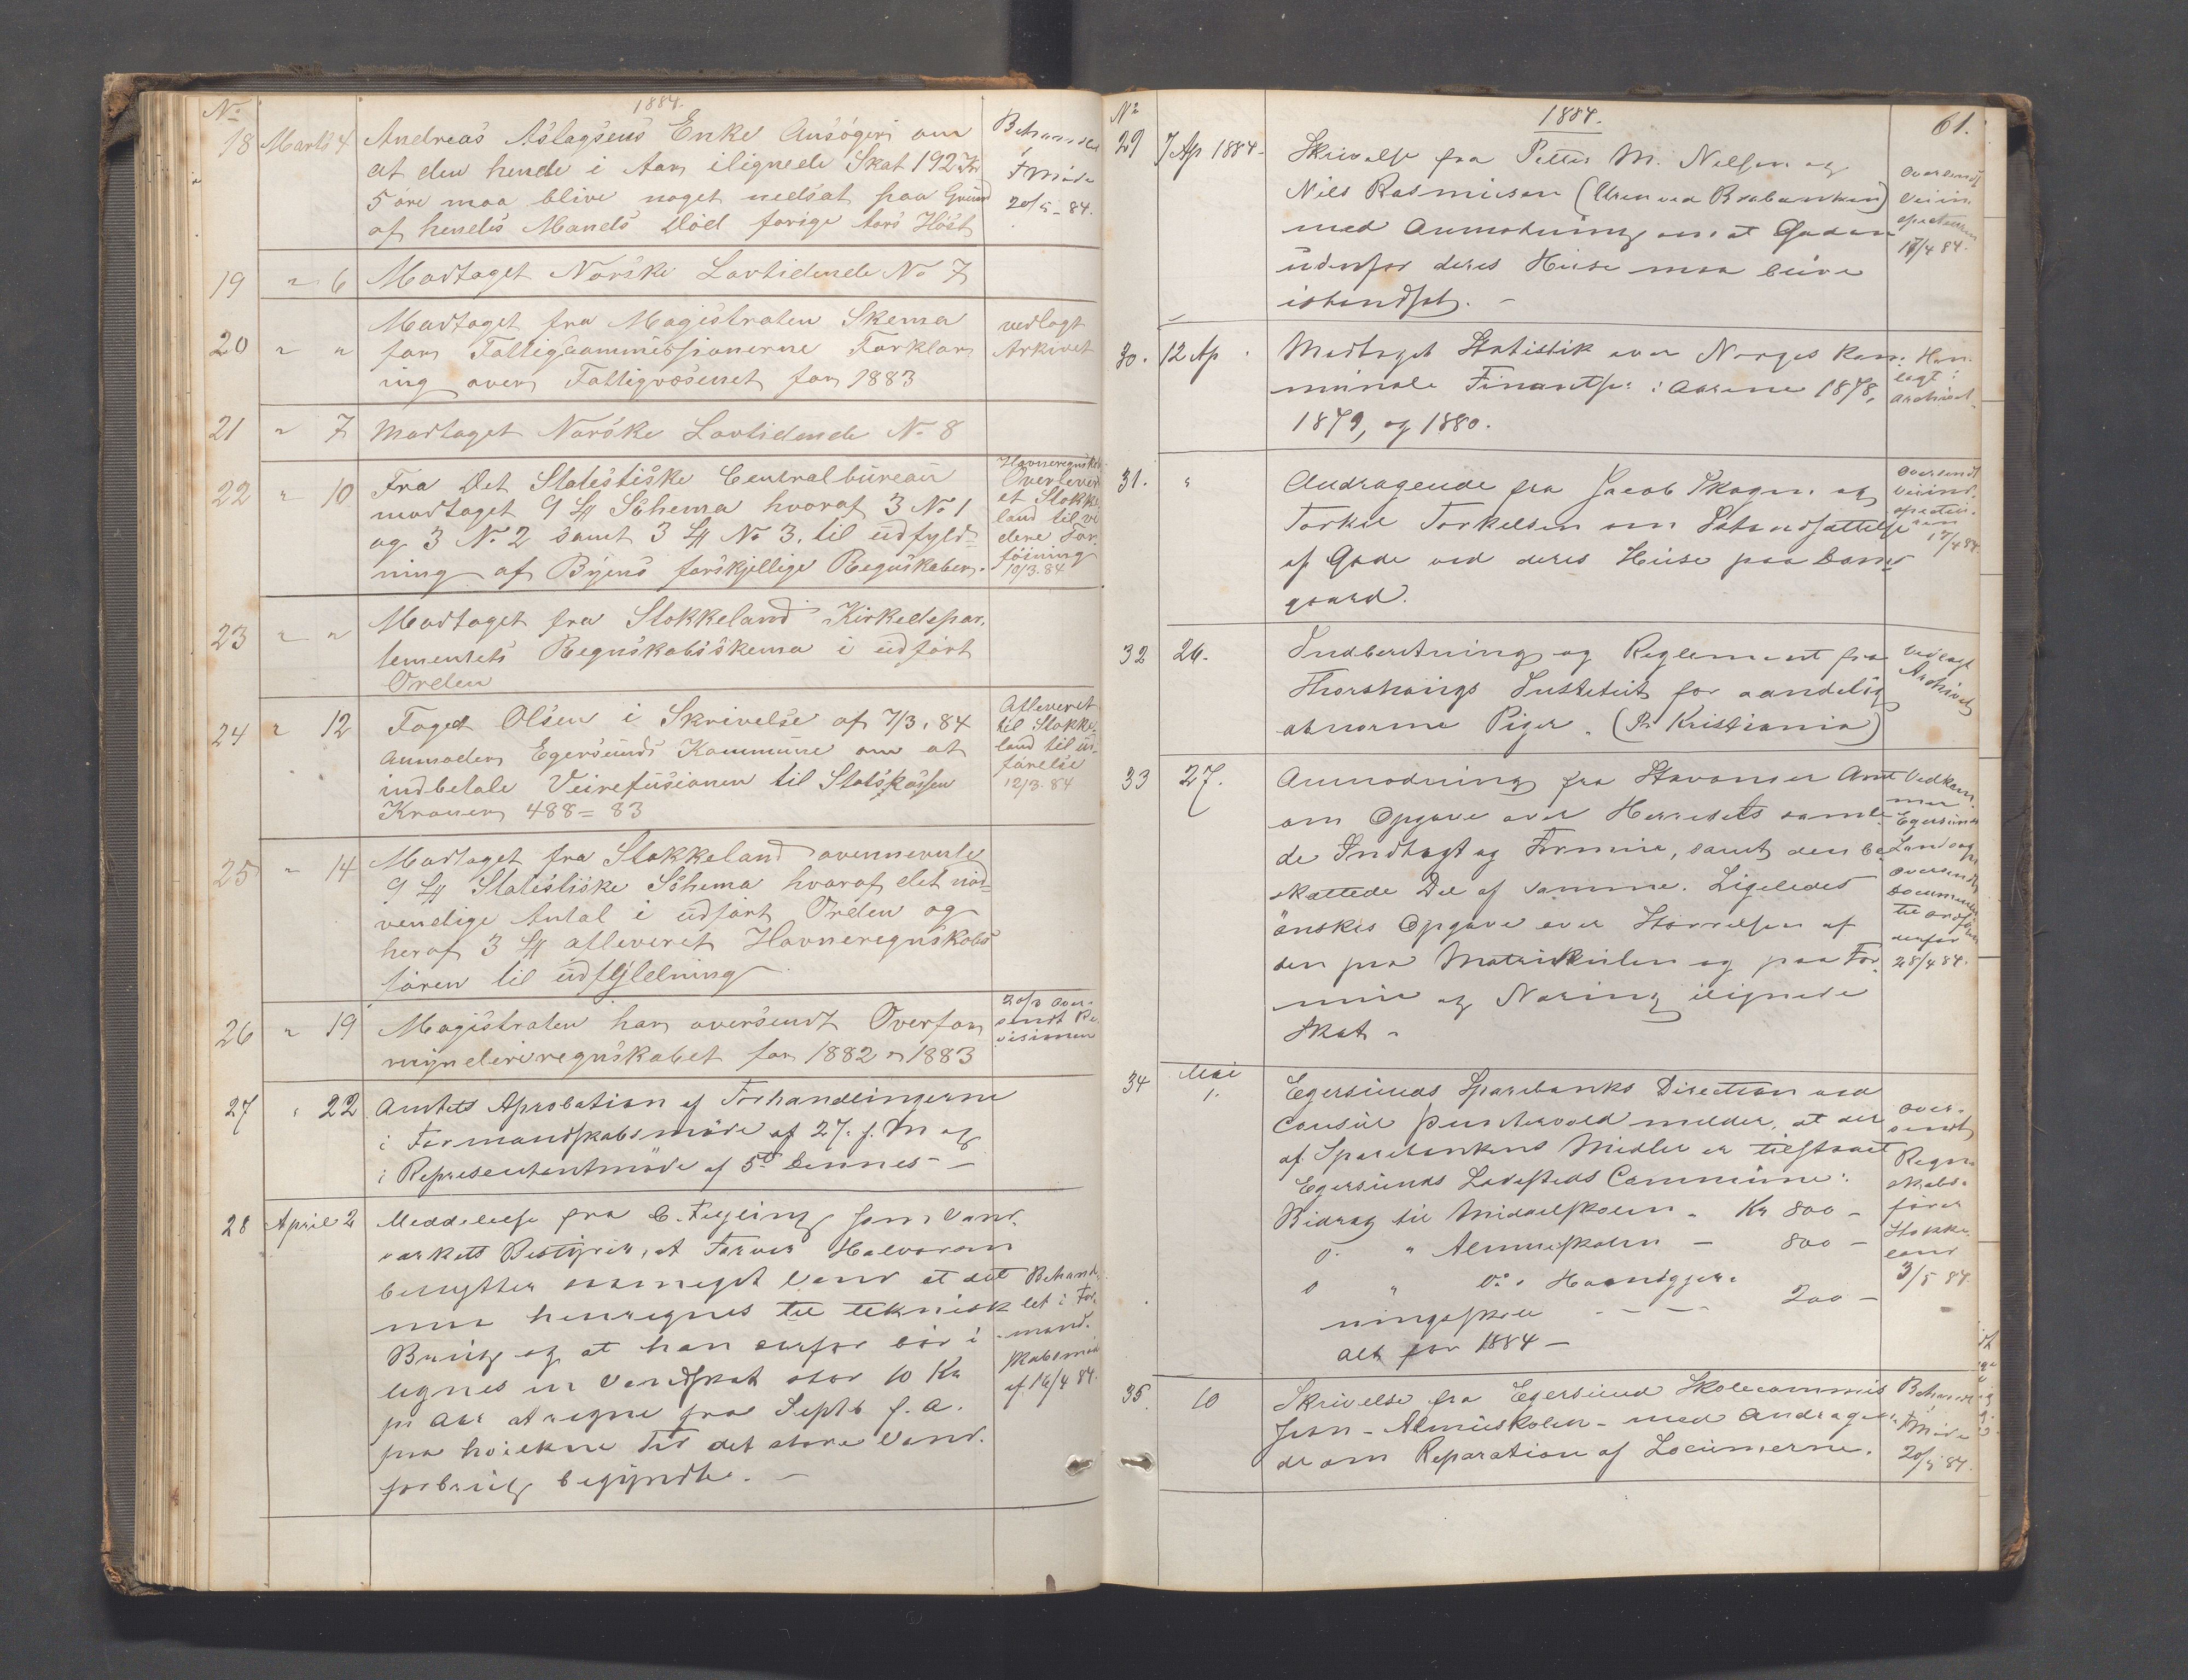 No
1884.
18 Marts 4 Andreas Aslagsens Enke Ansøger om
at den hende i Aar ilignede Skat 192 Kr
5 øre maa blive noget nedsat paa Grund
af hendes Mands Død forige Aars Høst
Behandlet
i
F Møde
20/5 - 84.
19 " 6 Modtaget Norske Lovtidende No 7
20 " " Modtaget fra Magistraten Skema
for Fattigcommissionerne Forklar
ing over Fattigvæsenet for 1883
vedlagt
Arkivet
21 " 7 Modtaget Norske Lovtidende No 8
22 " 10 Fra Det Statestiske Centralbureau
modtaget 9 Schema hvoraf 3 No 1
og 3 No 2 samt 3 No 3. til udfyld=
ning af Byens forskjellige Regnskaber.
Havneregnskab
Overlever
et Stokke
land til vi
dere For
føining
10/3.84
23 " " Modtaget fra Stokkeland Kirkedepar.
tementets Regnskabsskema i udført
Orden
24 " 12 Foged Olsen i Skrivelse af 7/3. 84
anmoder Egersunds Kommune om at
indbetale Veirefusionen til Statskassen
Kroner 488 = 83
Afleveret
til Stokke
land til ud
førelse
12/3.84
25 " 14 Modtaget fra Stokkeland ovennevnte
9 Statestiske Schema hvoraf det nød=
vendige Antal i udført Orden og
heraf 3 afleveret Havneregnskabs
føren til udfyldning
26 " 19 Magistraten har oversendt Overfor
mynderiregnskabet for 1882 & 1883
20/3 over-
sendt Re
visionen
27 " 22 Amtets Aprobation af Forhandlingerne
i Formandskabsmøde af 27. f. M og
i Representantmøde af 5 dennes -
28 April 2 Meddelelse fra C. Feyling som Vand.
værkets Bestyrer, at Farver Halvorsen
benytter saameget Vand at det
maa henregnes til teknisk
Brug og at han derfor bør i
lignes en Vandskat stor 10 Kr
pr Aar at regne fra Septb f. A.
paa hvilken Tid det store Vand.
forbrug begyndte. -
Behand
let i For
mand.
skabsmøde
af 16/4 84.
No
1884.
61.
29 7 Ap 1884 - Skrivelse fra Petter M. Nilsen og
Nils Rasmusen (Uren ved Brobanken)
med Anmodning om at Gaden
udenfor deres Huse maa blive
istandsat. -
oversendt
Veiin
specteuren
17/4 84.
30. 12 Ap. Modtaget Statistik over Norges Kom-
munale Finantser i Aarene 1878,
1879, og 1880.
Hen
lagt i
archivet.
31. " Andragende fra Jacob Skogen og
Torkil Torkelsen om Istandsættelse
af Gade ved deres Huse paa Dams
gaard.
oversendt
Veiind.
specteu.
ren
17/4 84.
32 26. Indberetning og Reglement fra
Thorshaugs Institut for aandelig
abnorme Piger. (Pr Kristiania)
vedlagt
Archivet
33 27. Anmodning fra Stavanger Amt
om Opgave over Herredets samle
de Indtægt og Formue, samt den be
skattede Del af samme. Ligeledes
ønskes Opgave over Størrelsen af
den paa Matrikulen og paa For
mue og Næring ilignede
Skat -
Vedkom.
mer
Egersunds
Landsogn
oversendt
Documentet
til
derfor
28/4 84.
34 Mai
1. Egersunds Sparebanks Direction ved
Consul Puntervold melder, at der
af Sparebankens Midler er tilstaaet
Egersunds Ladesteds Commune:
Bidrag til Middelskolen - Kr 800 -
Do. " Almueskolen - 800 -
Do " Do. Haandgjer=
ningsskole - - - 200 -
alt for 1884 -
over-
sendt
Regn
skabs-
fører
Stokke
land
3/5 84.
35. 10 Skrivelse fra Egersund Skolecommis
sion - Almueskolen - med Andragen
de om Reparation af Locumerne.
Behandl
i F Møde
20/5 84.